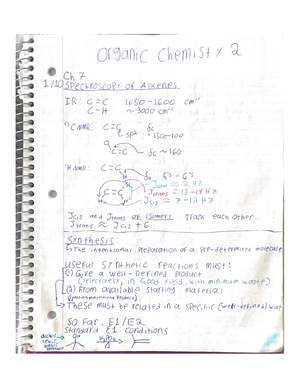 Organic Chemistry 2
Ch 7
1/10 Spectroscopy of Alkenes
IR: C=C 1650-1600 cm⁻¹
C-H ~3000 cm⁻¹
¹³C NMR: C=C δc
sp² 100
C=C δc ~160
¹H NMR: C=C
H
Jgem ≈ 2 Hz
Jtrans ≈ 13-18 Hz
Jcis ≈ 7-12 Hz
Jcis and Jtrans of isomers track each other.
Jtrans ≈ Jcis + 6
Synthesis
↳ The intentional preparation of a pre-determined molecule
Useful synthetic reactions must:
(1) Give a well-defined product
(selectively, in good yield, with minimum waste)
(2) From available starting material
↳ These must be related in a specific (well-defined) way
So far, E1/E2
Standard E1 conditions
OH H₂SO₄